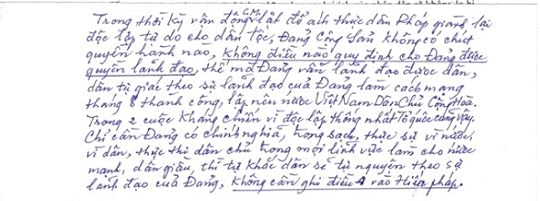 CM
Trong thời kỳ vận động lật đổ ách thực dân Pháp giành lại
độc lập tự do cho dân tộc, Đảng Cộng Sản không có chút
quyền hành nào, không điều nào quy định cho Đảng được
quyền lãnh đạo, thế mà Đảng vẫn lãnh đạo được dân,
dân tự giác theo sự lãnh đạo của Đảng làm cách mạng
tháng 8 thành công, lập nên nước Việt Nam Dân Chủ Cộng Hòa.
Trong 2 cuộc kháng chiến vì độc lập thống nhất Tổ quốc cũng vậy.
Chỉ cần Đảng có chính nghĩa, trong sạch, thực sự vì nước,
vì dân, thực thi dân chủ trong mọi lĩnh vực làm cho nước
mạnh, dân giàu, thì tự khắc dân sẽ tự nguyện theo sự
lãnh đạo của Đảng, không cần ghi điều 4 vào Hiến pháp.